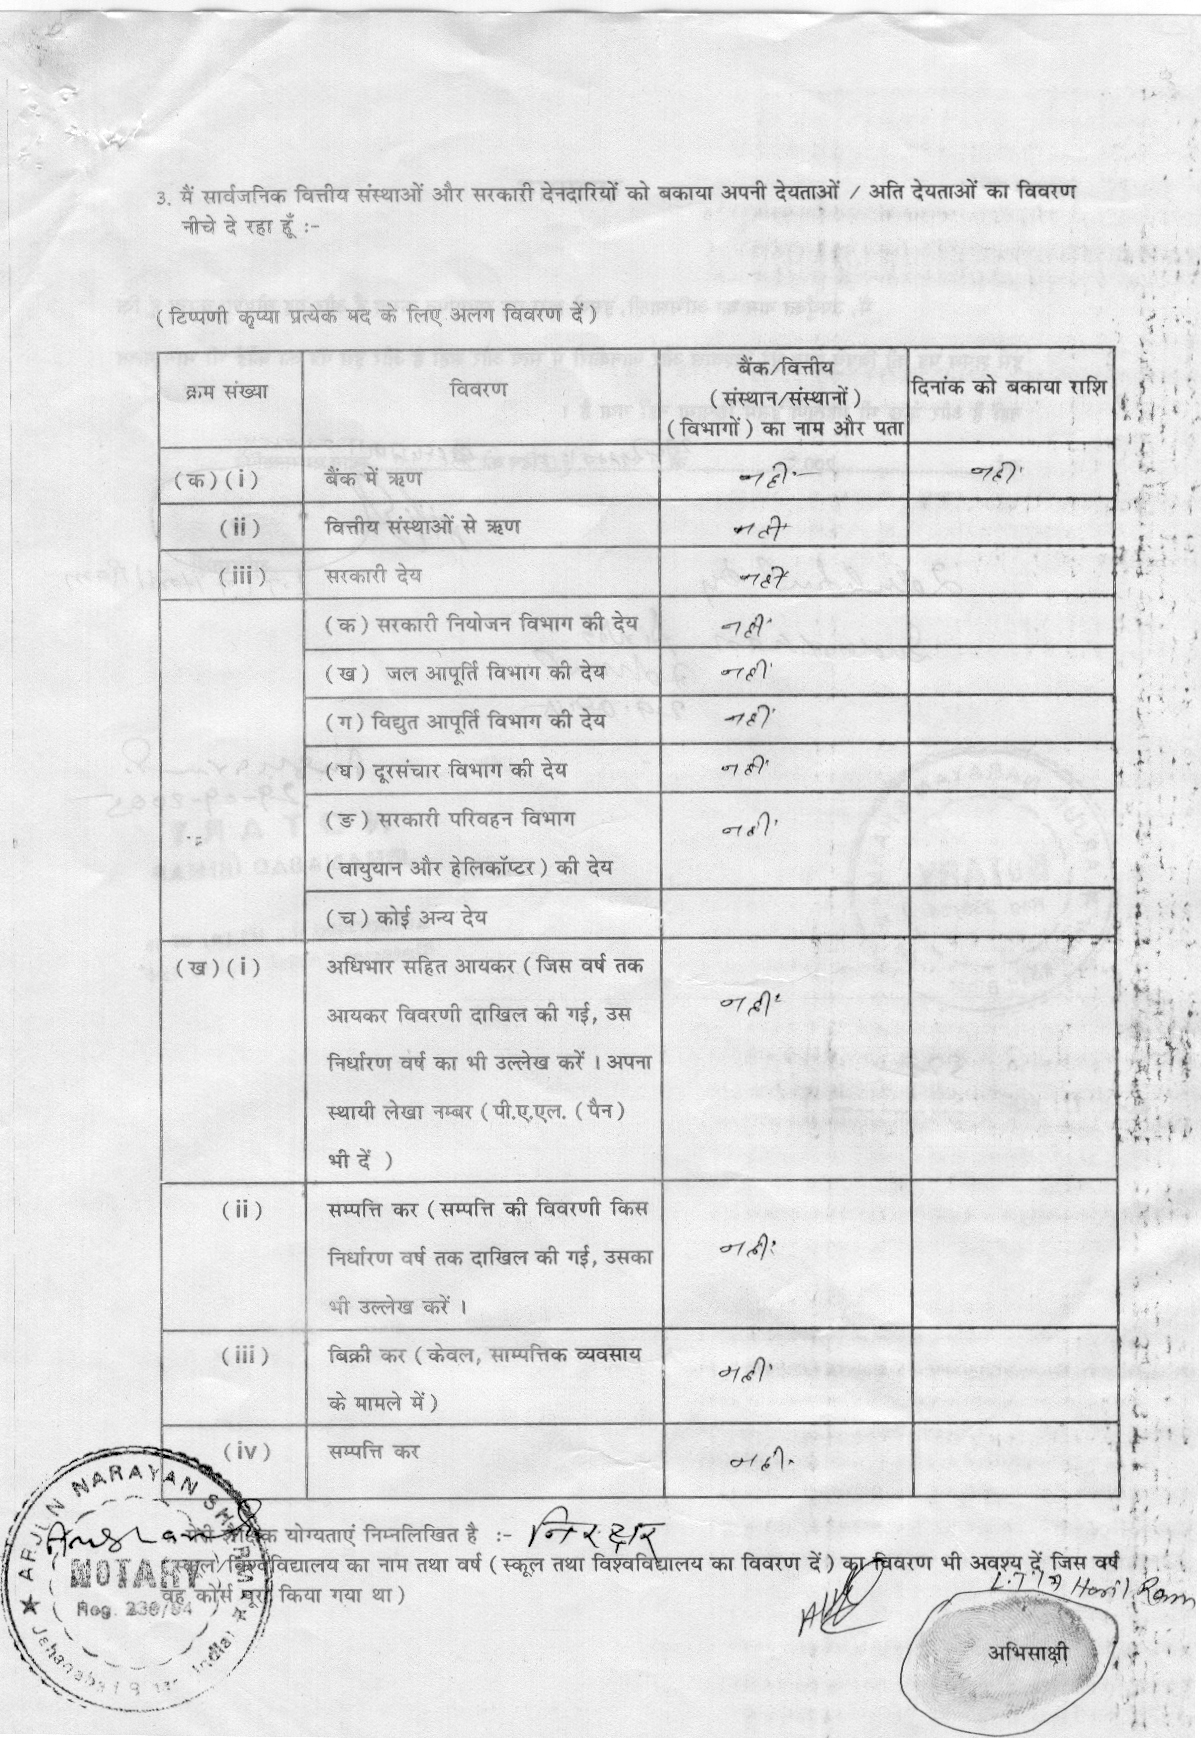 3. मैं सार्वजनिक वित्तीय संस्थाओं और सरकारी देनदारियों को बकाया अपनी देयताओं / अति देयताओं का विवरण
नीचे दे रहा हूँ :-
(टिप्पणी कृप्या प्रत्येक मद के लिए अलग विवरण दें)
क्रम संख्या विवरण बैंक/वित्तीय (संस्थान/संस्थानों) (विभागों) का नाम और पता दिनांक को बकाया राशि
(क)(i) बैंक में ऋण नहीं नहीं
(ii) वित्तीय संस्थाओं से ऋण नहीं
(iii) सरकारी देय नहीं
(क) सरकारी नियोजन विभाग की देय नहीं
(ख) जल आपूर्ति विभाग की देय नहीं
(ग) विद्युत आपूर्ति विभाग की देय नहीं
(घ) दूरसंचार विभाग की देय नहीं
(ङ) सरकारी परिवहन विभाग नहीं
(वायुयान और हेलिकॉप्टर) की देय
(च) कोई अन्य देय
(ख)(i) अधिभार सहित आयकर (जिस वर्ष तक
आयकर विवरणी दाखिल की गई, उस नहीं
निर्धारण वर्ष का भी उल्लेख करें । अपना
स्थायी लेखा नम्बर (पी.ए.एल. (पैन)
भी दें )
(ii) सम्पत्ति कर (सम्पत्ति की विवरणी किस
निर्धारण वर्ष तक दाखिल की गई, उसका नहीं
भी उल्लेख करें ।
(iii) बिक्री कर (केवल, साम्पत्तिक व्यवसाय नहीं
के मामले में)
(iv) सम्पत्ति कर नहीं
मेरी शैक्षिक योग्यताएं निम्नलिखित है :- निरक्षर
स्कूल/विश्वविद्यालय का नाम तथा वर्ष (स्कूल तथा विश्वविद्यालय का विवरण दें) का विवरण भी अवश्य दें जिस वर्ष
वह कोर्स पूरा किया गया था)
ARJUN NARAYAN SHARMA
NOTARY
Reg. 230/94
Jehanabad
Ram
अभिसाक्षी